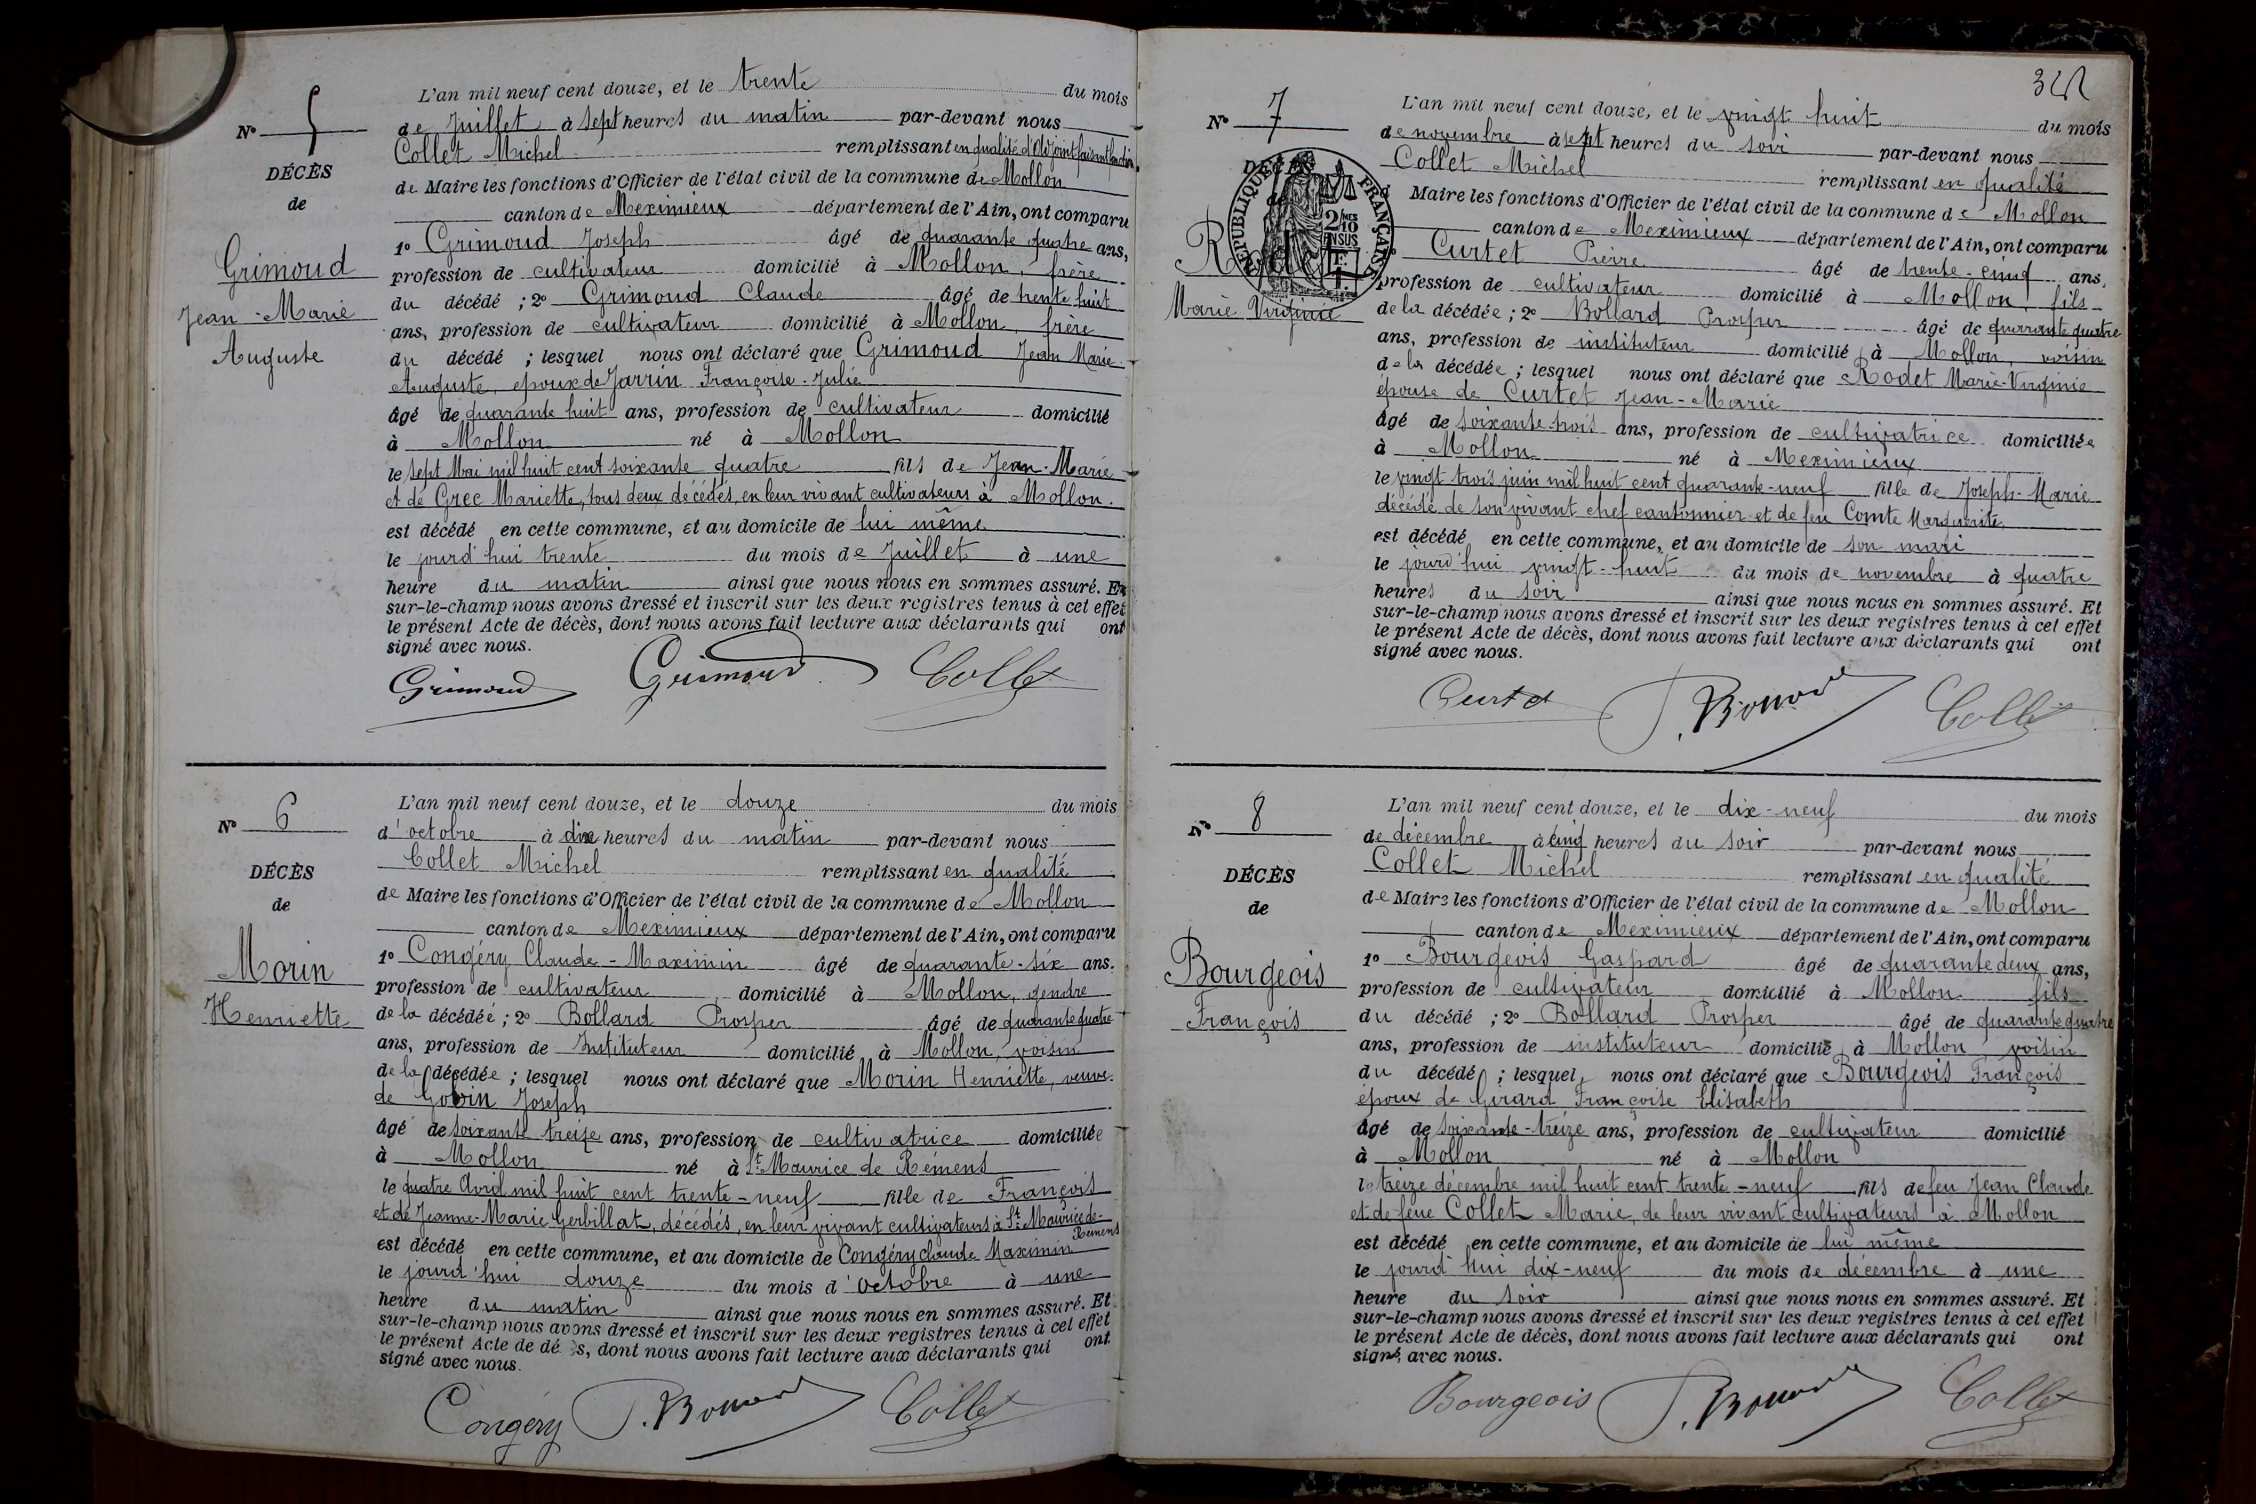 N° 5
DÉCÈS
de
Grimoud
Jean-Marie
Auguste
L'an mil neuf cent douze, et le trente du mois
de Juillet à sept heures du matin par-devant nous
Collet Michel remplissant en qualité d'Adjoint faisant fonction
de Maire les fonctions d'Officier de l'état civil de la commune de Mollon
canton de Meximieux département de l'Ain, ont comparu
1° Grimoud Joseph âgé de quarante quatre ans,
profession de cultivateur domicilié à Mollon, frère
du décédé ; 2° Grimoud Claude âgé de trente huit
ans, profession de cultivateur domicilié à Mollon, frère
du décédé ; lesquel nous ont déclaré que Grimoud Jean Marie
Auguste, époux de Jarrin Françoise-Julie
âgé de quarante huit ans, profession de cultivateur domicilié
à Mollon né à Mollon
le sept Mai mil huit cent soixante quatre fils de Jean-Marie
et de Grec Mariette, tous deux décédés, en leur vivant cultivateurs à Mollon.
est décédé en cette commune, et au domicile de lui même
le jourd'hui trente du mois de Juillet à une
heure du matin ainsi que nous nous en sommes assuré. Et
sur-le-champ nous avons dressé et inscrit sur les deux registres tenus à cet effet
le présent Acte de décès, dont nous avons fait lecture aux déclarants qui ont
signé avec nous.
Grimoud Grimoud Collet
N° 6
DÉCÈS
de
Morin
Henriette
L'an mil neuf cent douze, et le douze du mois
d'octobre à dix heures du matin par-devant nous
Collet Michel remplissant en qualité
de Maire les fonctions d'Officier de l'état civil de la commune de Mollon
canton de Meximieux département de l'Ain, ont comparu
1° Congéry Claude-Maximin âgé de quarante-six ans.
profession de cultivateur domicilié à Mollon, gendre
de la décédée ; 2° Bollard Prosper âgé de quarante quatre
ans, profession de Instituteur domicilié à Mollon, voisin
de la décédée ; lesquel nous ont déclaré que Morin Henriette, veuve
de Gobin Joseph
âgé de soixante treize ans, profession de cultivatrice domiciliée
à Mollon né à St Maurice de Rémens
le quatre Avril mil huit cent trente-neuf fille de François
et de Jeanne-Marie Gerbillat, décédés, en leur vivant cultivateurs à St Maurice de-
Rémens
est décédé en cette commune, et au domicile de Congéry Claude Maximin
le jourd'hui douze du mois d'octobre à une
heure du matin ainsi que nous nous en sommes assuré. Et
sur-le-champ nous avons dressé et inscrit sur les deux registres tenus à cet effet
le présent Acte de dé s, dont nous avons fait lecture aux déclarants qui ont
signé avec nous.
Congéry P. Bollard Collet
N° 7
DÉCÈS
de
Rodet
Marie Virginie
RÉPUBLIQUE FRANÇAISE
2/10 MES
EN SUS
L'an mil neuf cent douze, et le vingt huit du mois
de novembre à sept heures du soir par-devant nous
Collet Michel remplissant en qualité
d Maire les fonctions d'Officier de l'état civil de la commune de Mollon
canton de Meximieux département de l'Ain, ont comparu
Curtet Pierre âgé de trente-cinq ans,
profession de cultivateur domicilié à Mollon, fils
de la décédée ; 2° Bollard Prosper âgé de quarante quatre
ans, profession de instituteur domicilié à Mollon, voisin
de la décédée ; lesquel nous ont déclaré que Rodet Marie-Virginie
épouse de Curtet Jean-Marie
âgé de soixante trois ans, profession de cultivatrice domiciliée
à Mollon né à Meximieux
le vingt trois juin mil huit cent quarante-neuf fille de Joseph-Marie
décédé de son vivant chef cantonnier et de feu Comte Marguerite
est décédé en cette commune, et au domicile de son mari
le jourd'hui vingt-huit du mois de novembre à quatre
heures du soir ainsi que nous nous en sommes assuré. Et
sur-le-champ nous avons dressé et inscrit sur les deux registres tenus à cet effet
le présent Acte de décès, dont nous avons fait lecture aux déclarants qui ont
signé avec nous.
Curtet P. Bollard Collet
N° 8
DÉCÈS
de
Bourgeois
François
L'an mil neuf cent douze, et le dix-neuf du mois
de décembre à cinq heures du soir par-devant nous
Collet Michel remplissant en qualité
de Maire les fonctions d'Officier de l'état civil de la commune de Mollon
canton de Meximieux département de l'Ain, ont comparu
1° Bourgeois Gaspard âgé de quarante deux ans,
profession de cultivateur domicilié à Mollon fils
du décédé ; 2° Bollard Prosper âgé de quarante quatre
ans, profession de instituteur domicilié à Mollon voisin
du décédé ; lesquel, nous ont déclaré que Bourgeois François
époux de Girard Françoise Elisabeth
âgé de soixante-treize ans, profession de cultivateur domicilié
à Mollon né à Mollon
le treize décembre mil huit cent trente-neuf fils de feu Jean Claude
et de feue Collet Marie, de leur vivant cultivateurs à Mollon
est décédé en cette commune, et au domicile de lui même
le jourd'hui dix-neuf du mois de décembre à une
heure du soir ainsi que nous nous en sommes assuré. Et
sur-le-champ nous avons dressé et inscrit sur les deux registres tenus à cet effet
le présent Acte de décès, dont nous avons fait lecture aux déclarants qui ont
signé avec nous.
Bourgeois P. Bollard Collet